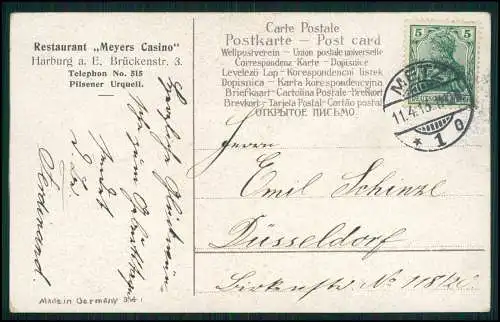 Restaurant „Meyers Casino"
Harburg a. E. Brückenstr. 3.
Telephon No. 515
Pilsener Urquell.
Carte Postale
Postkarte – Post card
Weltpostverein – Union postale universelle
Correspondenz-Karte – Dopisnice
Levelező Lap – Korespondencni listek
Dopisnica – Karta korespondencyjna
Briefkaart – Cartolina Postale – Brefkort
Brevkort – Tarjeta Postal – Cartão postal
ОТКРЫТОЕ ПИСЬМО.
5
5
METZ
11.4.13
* 1 o
Herzliche Glückwün
zum Geburtstage
sendet
Ferdinand.
Herrn
Emil Schinze
Düsseldorf
Birkenstr. No 118/20
Made in Germany